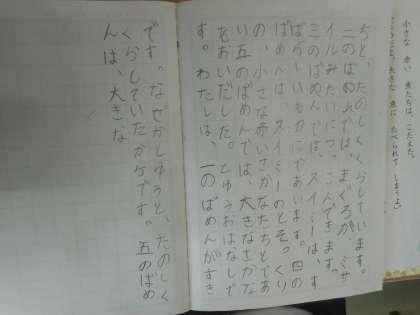 小さな 赤い 魚たちは、こたえた。
大きな 魚に たべられて しまうよ。」
ちと、たのしくくらしています。
二のばめんでは、まぐろが、ミサ
イルみたいにつっこんできます。
三のばめんでは、スイミーは、す
ばらしいものにであいます。四の
ばめんは、スイミーのとそっくり
の、小さな赤いさかなたちとであ
い五のばめんでは、大きなさかな
をおいだした。というおはなしで
す。わたしは、一のばめんがすき
です。なぜかというと、たのしく
くらしていたからです。五のばめ
んは、大きな